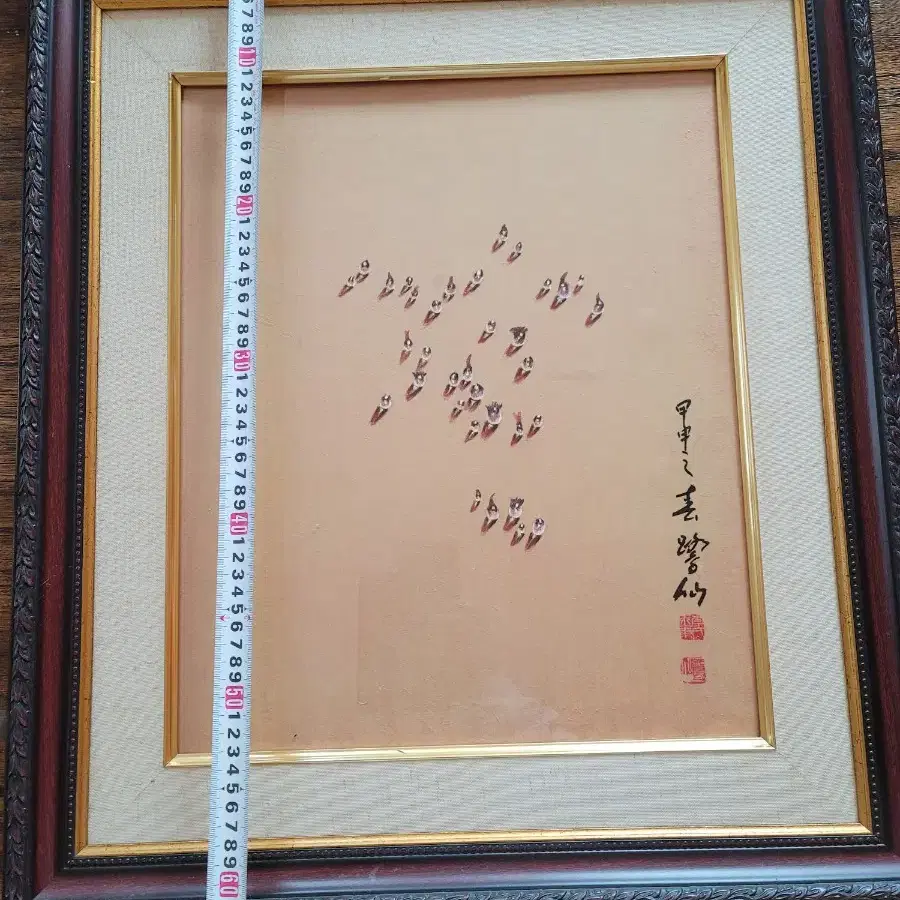 6 7 8 9 10 1 2 3 4 5 6 7 8 9 20 1 2 3 4 5 6 7 8 9 30 1 2 3 4 5 6 7 8 9 40 1 2 3 4 5 6 7 8 9 50 1 2 3 4 5 6 7 8 9 60
甲申之春鷺仙